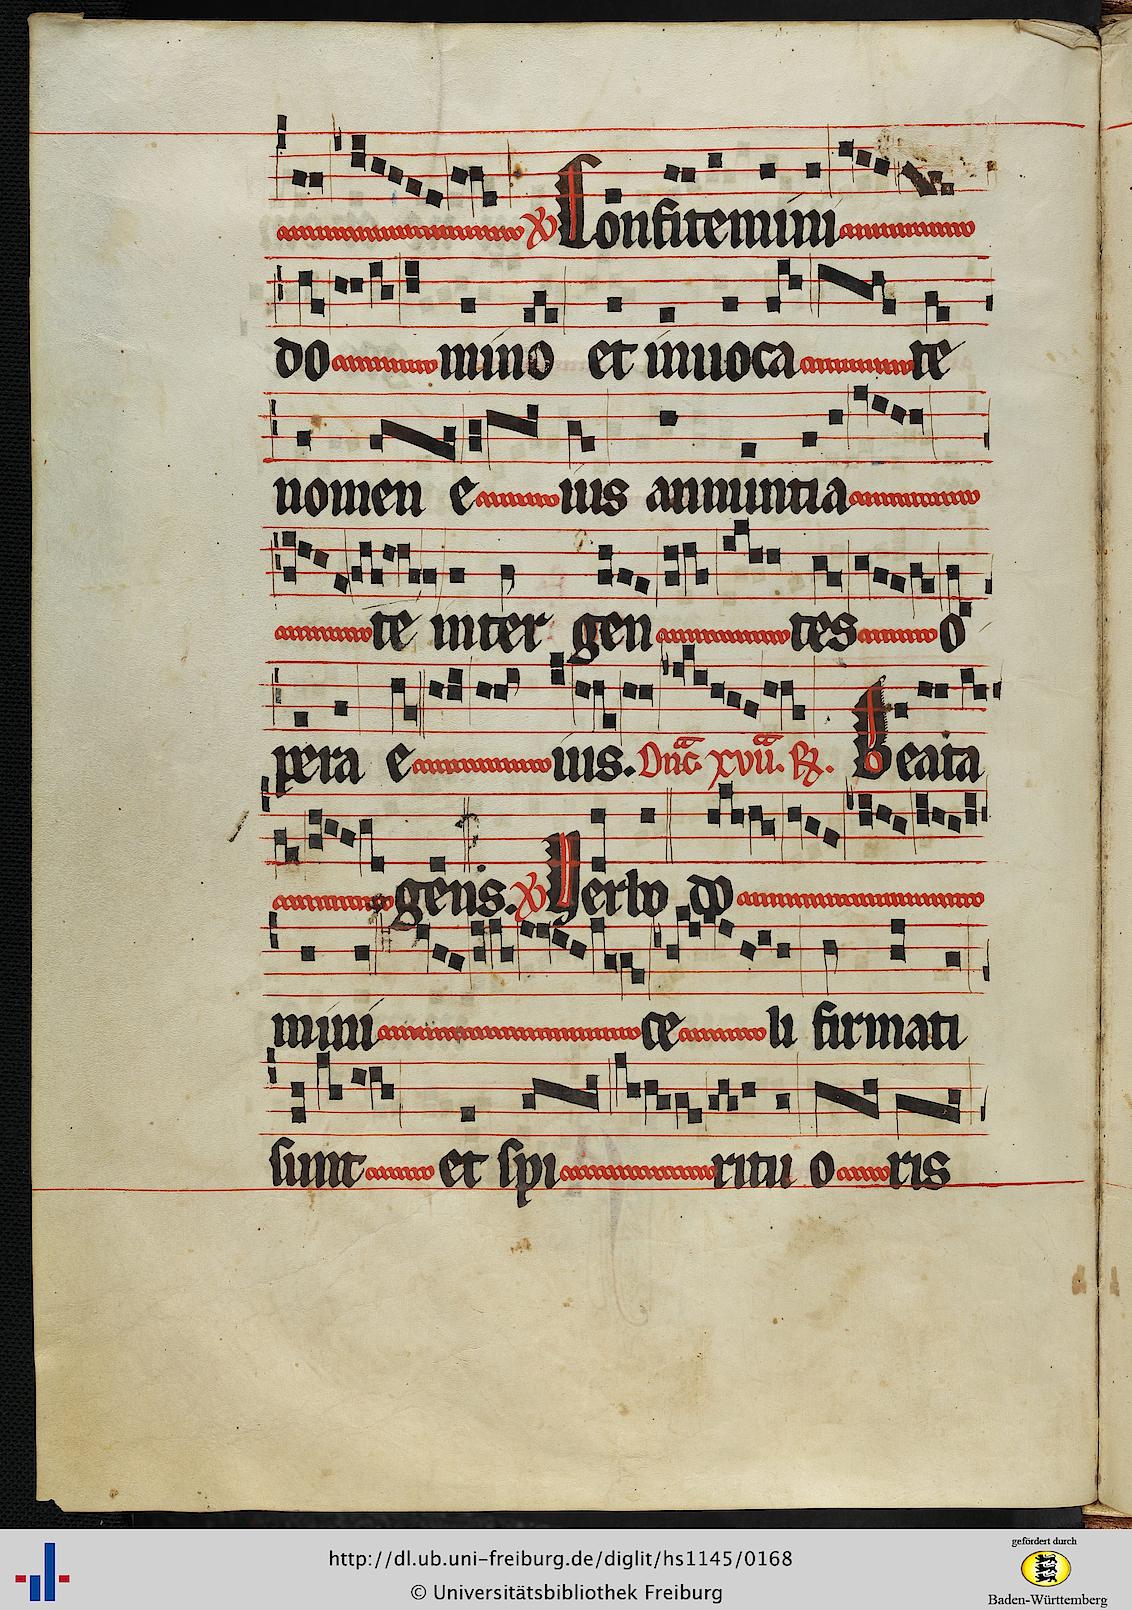 ℣ Confitemini
do mino et inuoca te
nomen e ius annuntia
te inter gen tes o
pera e ius. Dnĉa xvii. ℟. Beata
gens. ℣ Verbo do
mini ce li firmati
sunt et spi ritu o ris
http://dl.ub.uni-freiburg.de/diglit/hs1145/0168
© Universitätsbibliothek Freiburg
gefördert durch
Baden-Württemberg